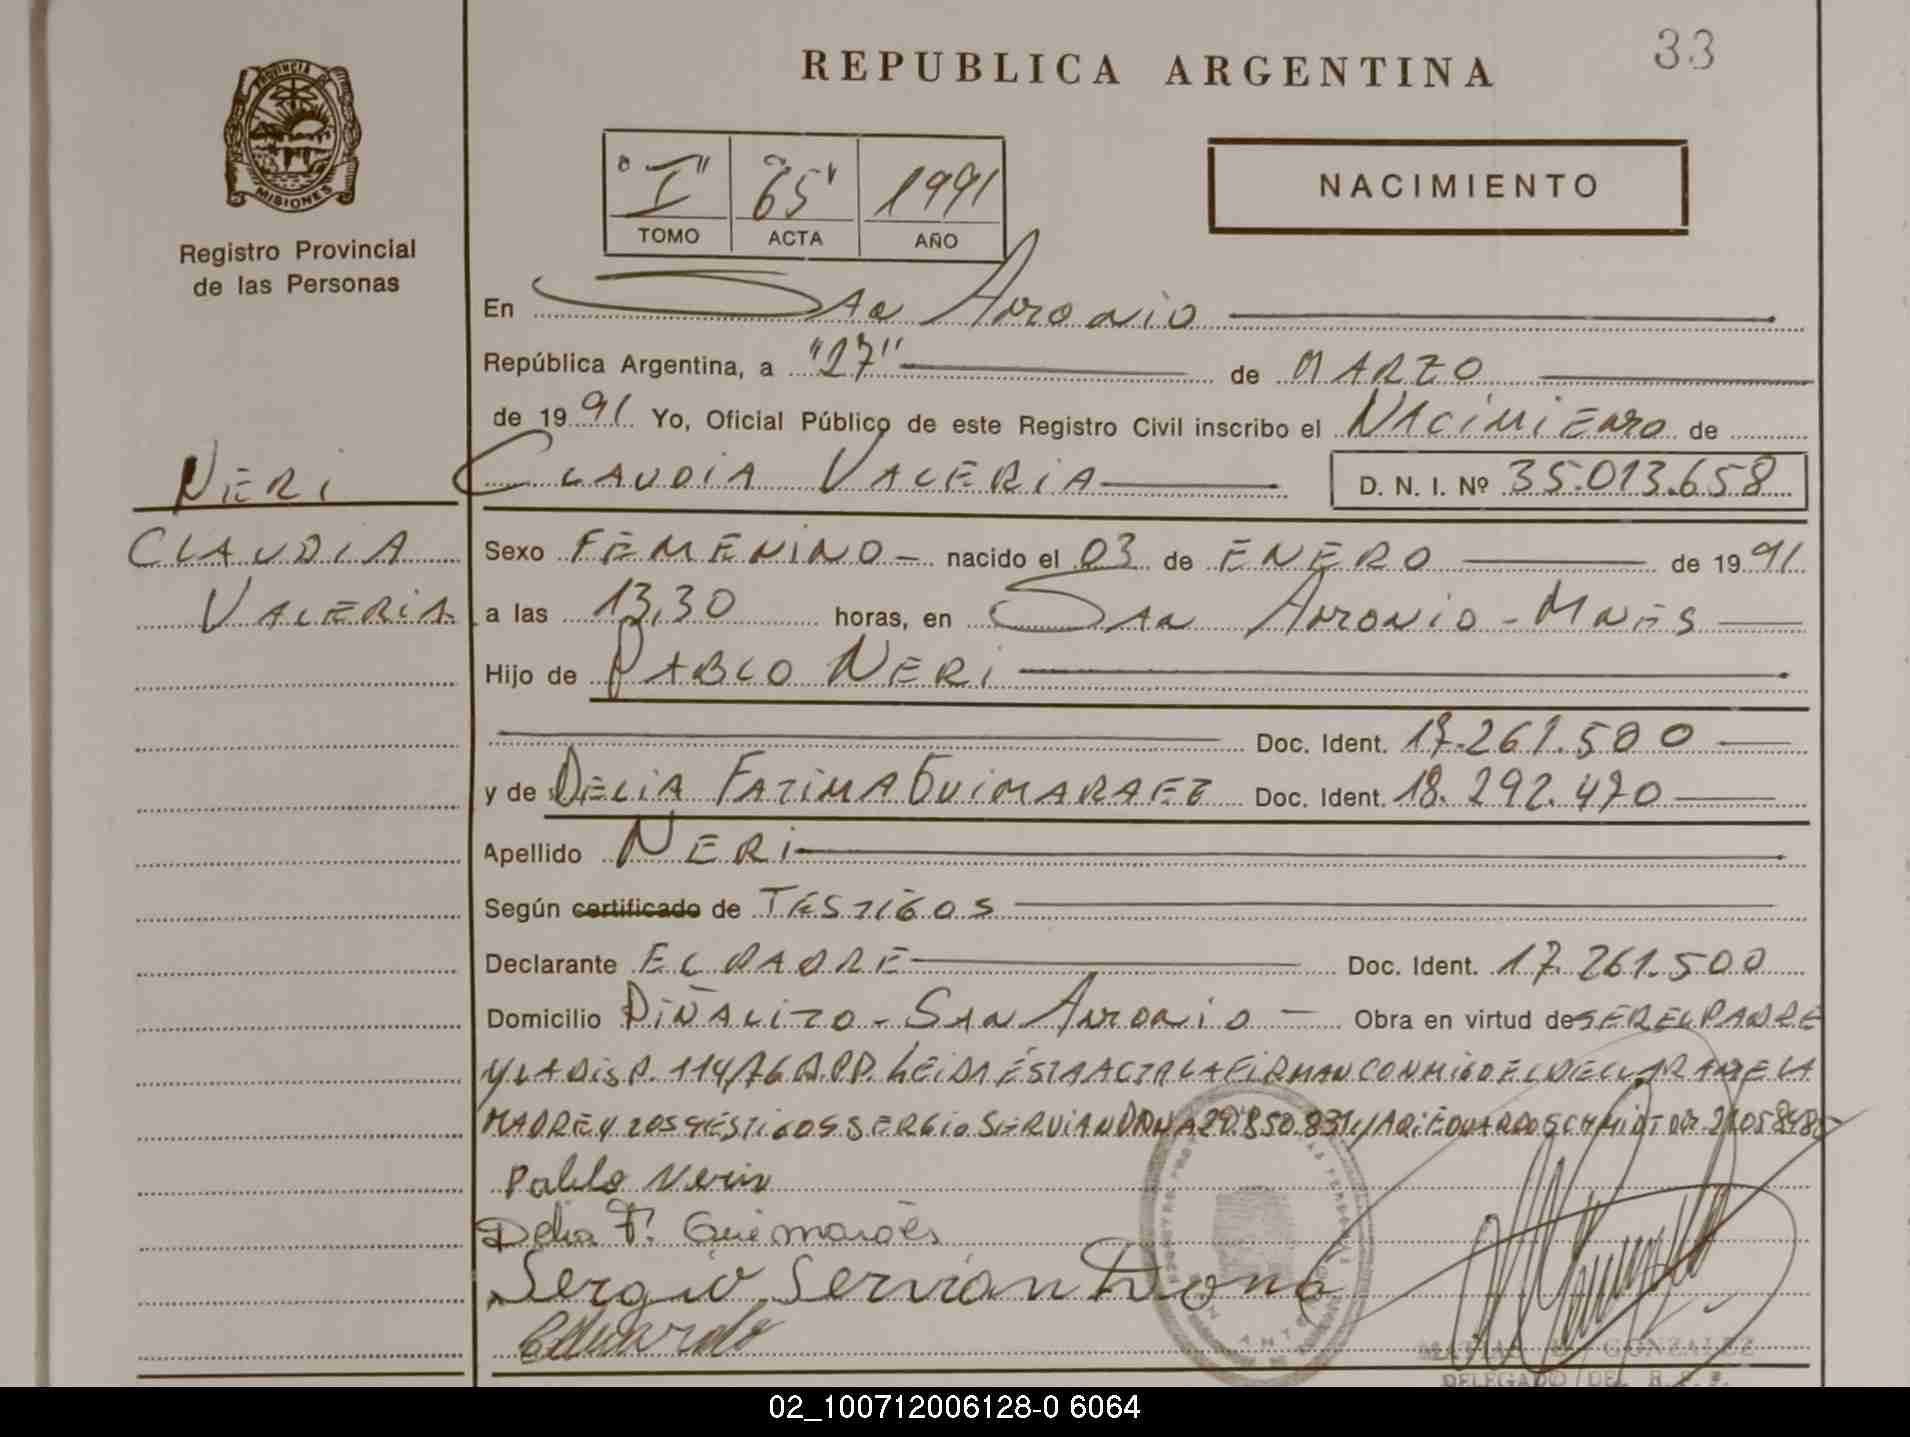 33
REPUBLICA ARGENTINA
PROVINCIA DE
MISIONES
Registro Provincial
de las Personas
"I" "65" 1991
TOMO ACTA AÑO
NACIMIENTO
En San Antonio
República Argentina, a "27" de MARZO
de 1991 Yo, Oficial Público de este Registro Civil inscribo el NACIMIENTO de
NERI
CLAUDIA VALERIA D. N. I. Nº 35.013.658
CLAUDIA
VALERIA
Sexo FEMENINO nacido el 03 de ENERO de 1991
a las 13,30 horas, en San Antonio - Mnes
Hijo de PABLO NERI
Doc. Ident. 17.261.500
y de DELIA FATIMA GUIMARAEZ Doc. Ident. 18.292.470
Apellido NERI
Según certificado de TESTIGOS
Declarante EL PADRE Doc. Ident. 17.261.500
Domicilio PIÑALITO - SAN ANTONIO Obra en virtud de SER EL PADRE
Y LA DISP. 114/76 R.P.P. LEIDA ÉSTA ACTA LA FIRMAN CONMIGO EL DECLARANTE LA
MADRE Y LOS TESTIGOS SERGIO SERVIAN DONA 29.850.831 Y EDUARDO SCHMIDT
Pablo Neris
Delia F. Guimaraês
Sergio Servian Dona
Eduardo
GONZALEZ
DELEGADO DEL R. P. P.
02_100712006128-0 6064